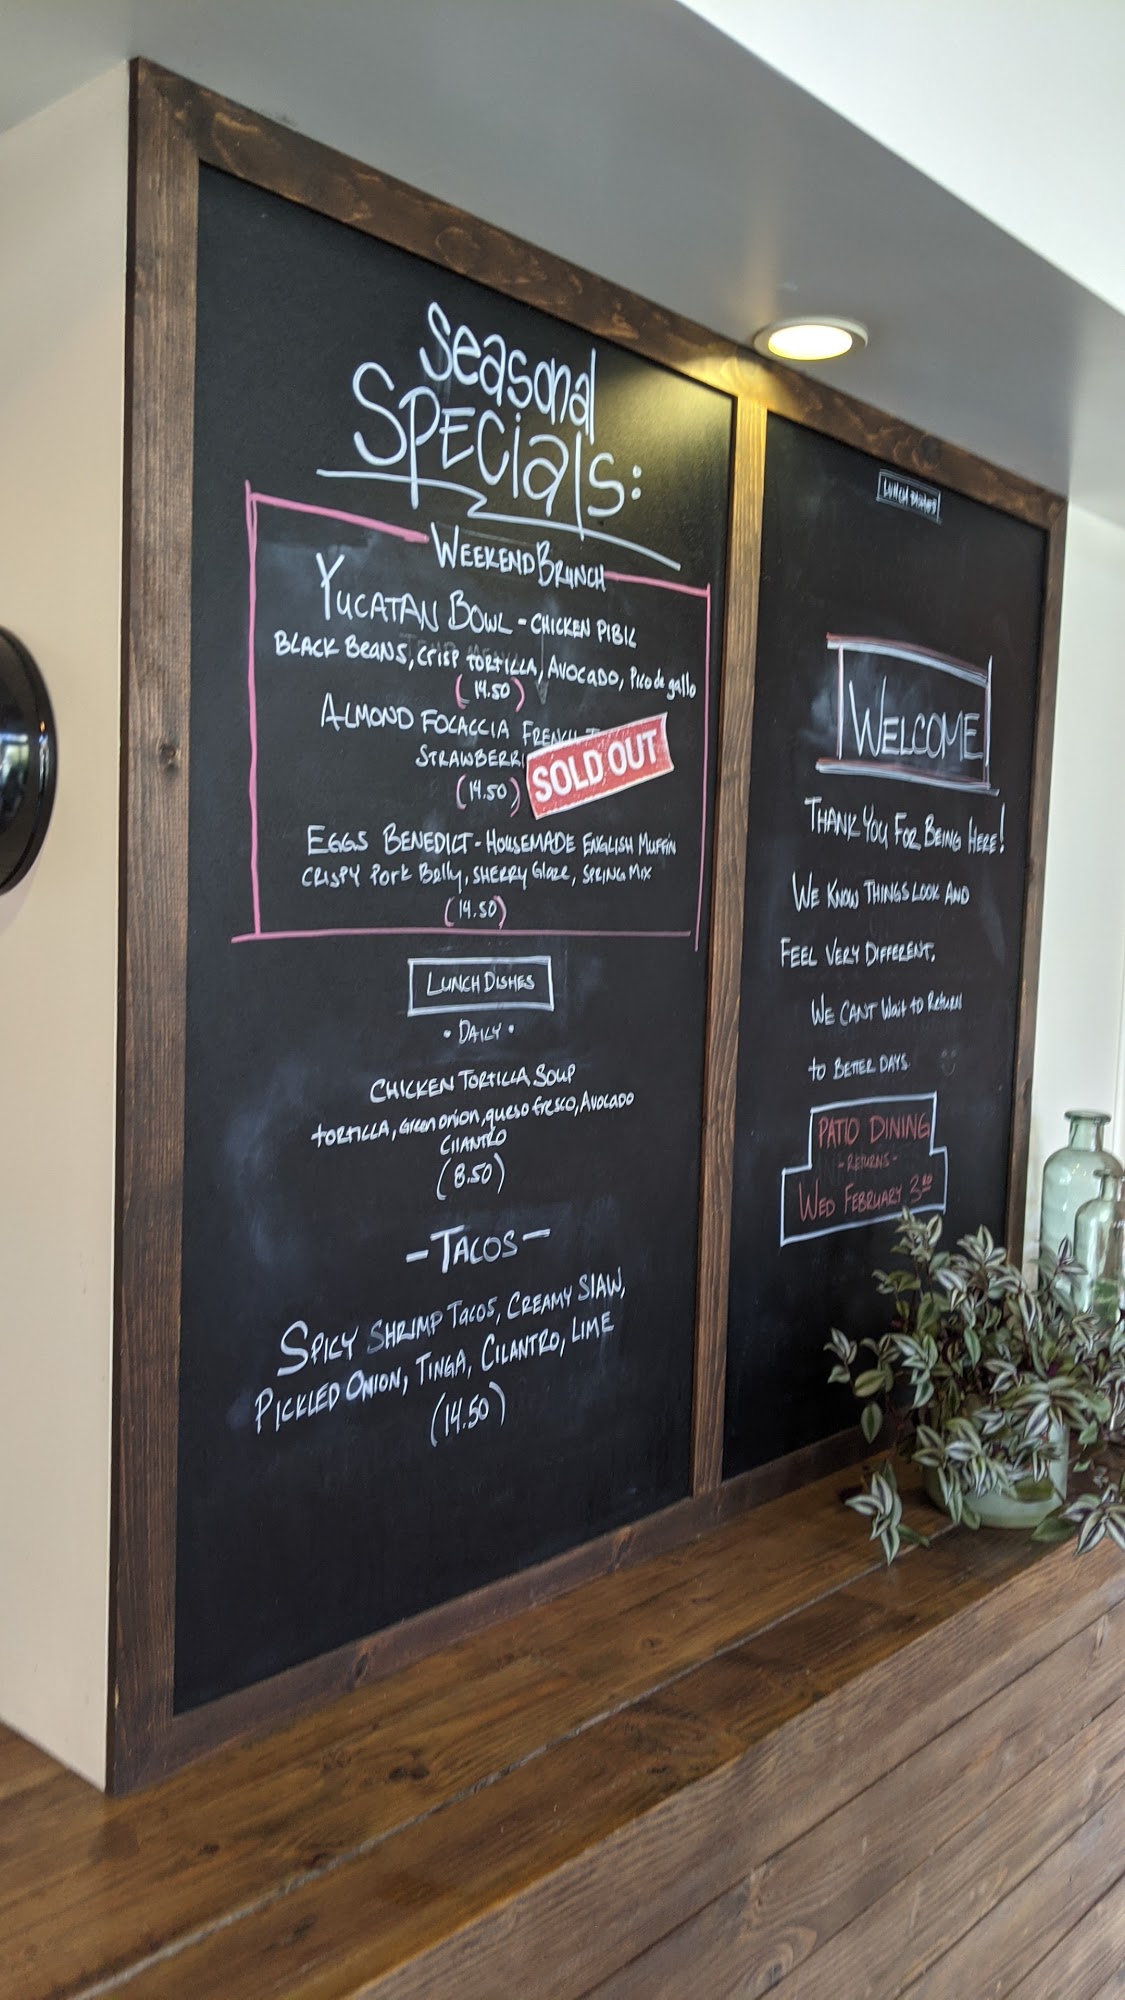 Seasonal
Specials:
WEEKEND BRUNCH
YUCATAN BOWL - CHICKEN PIBIL
BLACK BEANS, CRISP TORTILLA, AVOCADO, Pico de gallo
(14.50)
ALMOND FOCACCIA FRENCH
STRAWBERRI
SOLD OUT
(14.50)
EGGS BENEDICT - HOUSEMADE ENGLISH MUFFIN
CRISPY Pork Belly, SHERRY Glaze, SPRING MIX
(14.50)
LUNCH DISHES
• DAILY •
CHICKEN TORTILLA SOUP
TORTILLA, Green onion, queso fresco, Avocado
CILANTRO
(8.50)
- TACOS -
SPICY SHRIMP TACOS, CREAMY SLAW,
PICKLED ONION, TINGA, CILANTRO, LIME
(14.50)
LUNCH DISHES
WELCOME
THANK YOU FOR BEING HERE!
WE KNOW THINGS LOOK AND
FEEL VERY DIFFERENT.
WE CANT Wait to Return
to BETTER DAYS.
PATIO DINING
- RETURNS -
WED FEBRUARY 3RD